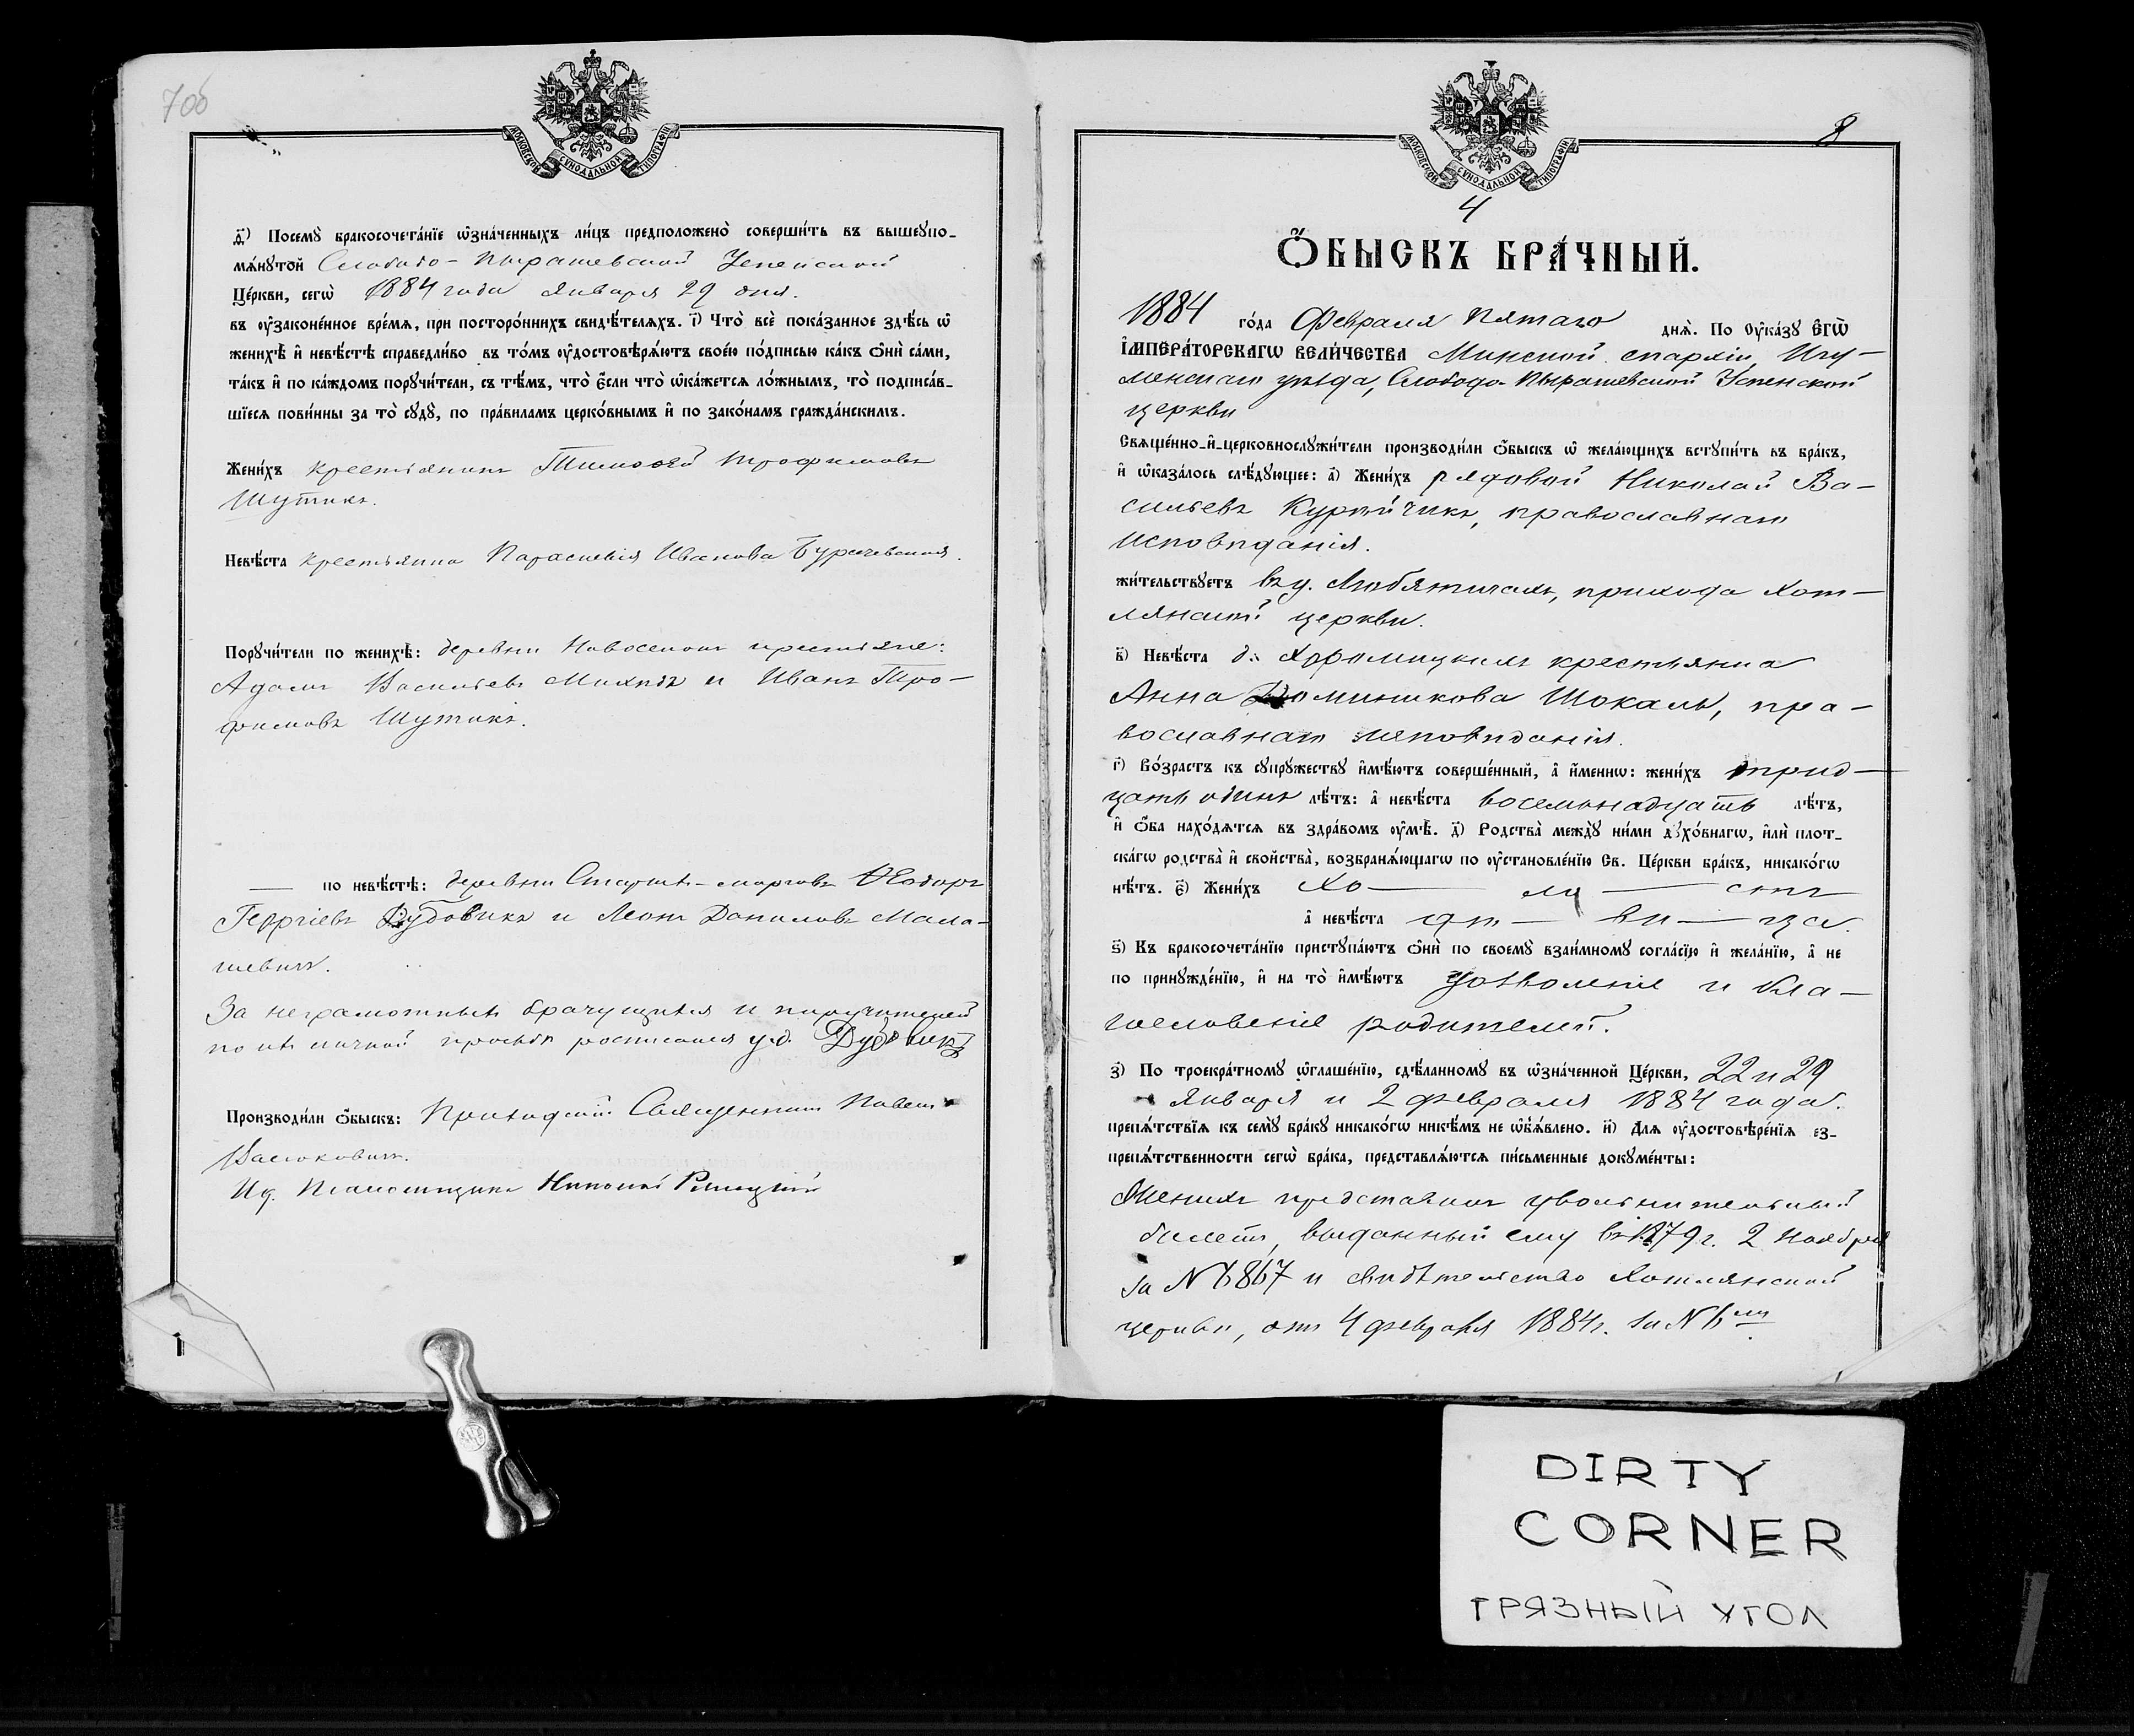 7об
МОСКОВСКОЙ СУНОДАЛЬНОЙ ТИПОГРАФІИ
д҃) Посемꙋ̀ бракосочета́нїе ѡ҆зна́ченныхъ ли́цъ предположено̀ соверши́ть въ вышеꙋпо-
мѧ́нꙋтой Слободо-Пырашевской Успенской
Це́ркви, сегѡ̀ 1884 года Января 29 дня.
въ ᲂу҆зако́ненное вре́мѧ, при посторо́ннихъ свидѣ́телѧхъ. і҃) Что̀ всѐ пока́занное здѣ́сь ѡ҆
женихѣ̀ и҆ невѣ́стѣ справедли́во въ то́мъ ᲂу҆достовѣрѧ́ютъ свое́ю по́дписью ка́къ ѻ҆нѝ са́ми,
та́къ и҆ по ка́ждомъ порꙋчи́тели, съ тѣ́мъ, что̀ є҆́сли что̀ ѡ҆ка́жетсѧ ло́жнымъ, то̀ подписа́в-
шїесѧ пови́нны за то̀ сꙋдꙋ̀, по пра́виламъ церко́внымъ и҆ по зако́намъ гражда́нскимъ.
Жени́хъ крестьянинъ Тимоѳей Трофимовъ
Шутикъ.
Невѣ́ста крестьянка Параскевія Иванова
Порꙋчи́тели по женихѣ̀: деревни Новоселокъ крестьяне:
Адамъ Васильевъ и Иванъ Тро-
фимовъ Шутикъ.
— по невѣ́стѣ: деревни Ѳеодоръ
Георгіевъ Дубовикъ и Леонъ Даниловъ Мала-
шевичъ.
За неграмотныхъ брачущихся и поручителей
по ихъ личной просьбѣ росписался у.д. Дубовикъ
Производи́ли ѻ҆́быскъ: Приходскій Священникъ Павелъ
Васюковичъ.
Ид. Псаломщика Николай
МОСКОВСКОЙ СУНОДАЛЬНОЙ ТИПОГРАФІИ
8
4
Ѻ҆́БЫСКЪ БРА́ЧНЫЙ.
1884 го́да Февраля Пятаго днѧ̀. По ᲂу҆ка́зꙋ Є҆гѡ̀
І҆мпера́торскагѡ Вели́чества Минской епархіи, Игу-
менскаго уѣзда, Слободо-Пырашевской Успенской
церкви
Свѧще́нно-и҆-церковнослꙋжи́тели производи́ли ѻ҆́быскъ ѡ҆ жела́ющихъ встꙋпи́ть въ бра́къ,
и҆ ѡ҆каза́лось слѣ́дꙋющее: а҃) Жени́хъ рядовой Николай Ва-
сильевъ Курпичикъ, православнаго
исповѣданія.
жи́тельствꙋетъ въ д. Любятичахъ, прихода Хот-
лянской церкви.
в҃) Невѣ́ста д. крестьянка
Анна Доминикова Шокаль, пра-
вославнаго исповѣданія.
г҃) Во́зрастъ къ сꙋпрꙋ́жествꙋ и҆мѣ́ютъ соверше́нный, а҆ и҆́меннѡ: жени́хъ трид-
цать одинъ лѣ́тъ: а҆ невѣ́ста восемьнадцать лѣ́тъ,
и҆ ѻ҆́ба нахо́дѧтсѧ въ здра́вомъ ᲂу҆мѣ̀. д҃) Родства̀ междꙋ̀ ни́ми дꙋхо́внагѡ, и҆лѝ плот-
ска́гѡ родства̀ и҆ свойства̀, возбранѧ́ющагѡ по ᲂу҆становле́нїю Св. Це́ркви бра́къ, никако́гѡ
нѣ́тъ. є҃) Жени́хъ хо — ло — стъ
а҆ невѣ́ста дѣ — ви — ца.
ѕ҃) Къ бракосочета́нїю пристꙋпа́ютъ ѻ҆нѝ по своемꙋ̀ взаи́мномꙋ согла́сїю и҆ жела́нїю, а҆ не
по принꙋжде́нїю, и҆ на то̀ и҆мѣ́ютъ дозволеніе и бла-
гословеніе родителей.
з҃) По троекра́тномꙋ ѡ҆глаше́нїю, сдѣ́ланномꙋ въ ѡ҆зна́ченной Це́ркви, 22 и 29
Января и 2 февраля 1884 года.
препѧ́тствїѧ къ семꙋ̀ бра́кꙋ никако́гѡ никѣ́мъ не ѡ҆б̾ѧ́влено. и҃) Длѧ ᲂу҆достовѣре́нїѧ ез-
препѧ́тственности сегѡ̀ бра́ка, представлѧ́ютсѧ пи́сьменные докꙋме́нты:
Женихъ представилъ увольнительный
билетъ, выданный ему въ 1879 г. 2 Ноября
за № 6867 и свидѣтельство Хотлянской
церкви, отъ 4 февраля 1884 г. за №
1
DIRTY
CORNER
ГРЯЗНЫЙ УГОЛ